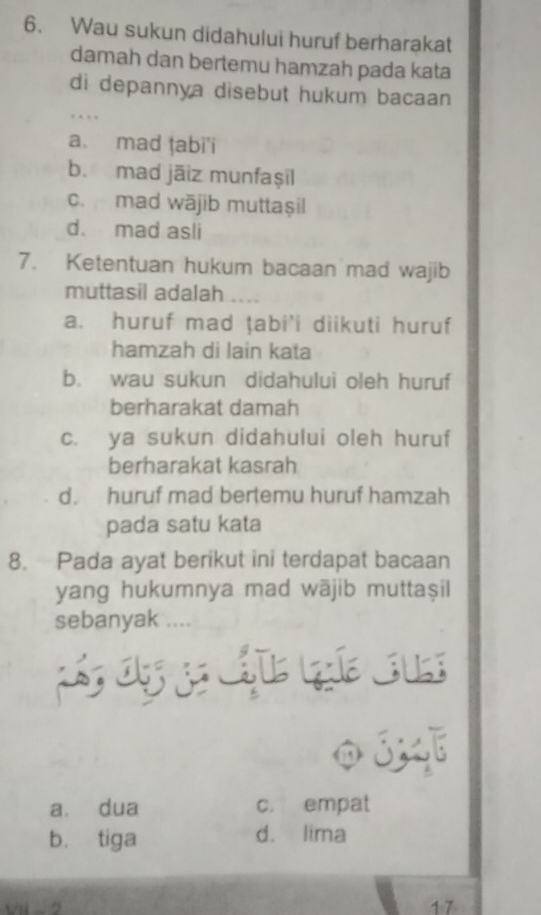 6. Wau sukun didahului huruf berharakat
damah dan bertemu hamzah pada kata
di depannya disebut hukum bacaan
....
a. mad ṭabi'i
b. mad jāiz munfaṣil
c. mad wājib muttaṣil
d. mad asli
7. Ketentuan hukum bacaan mad wajib
muttasil adalah ....
a. huruf mad ṭabi'i diikuti huruf
hamzah di lain kata
b. wau sukun didahului oleh huruf
berharakat damah
c. ya sukun didahului oleh huruf
berharakat kasrah
d. huruf mad bertemu huruf hamzah
pada satu kata
8. Pada ayat berikut ini terdapat bacaan
yang hukumnya mad wājib muttaṣil
sebanyak ....
فَطَافَ عَلَيْهَا طَآئِفٌ مِّن رَّبِّكَ وَهُمْ
نَآئِمُونَ ١٩
a. dua c. empat
b. tiga d. lima
17